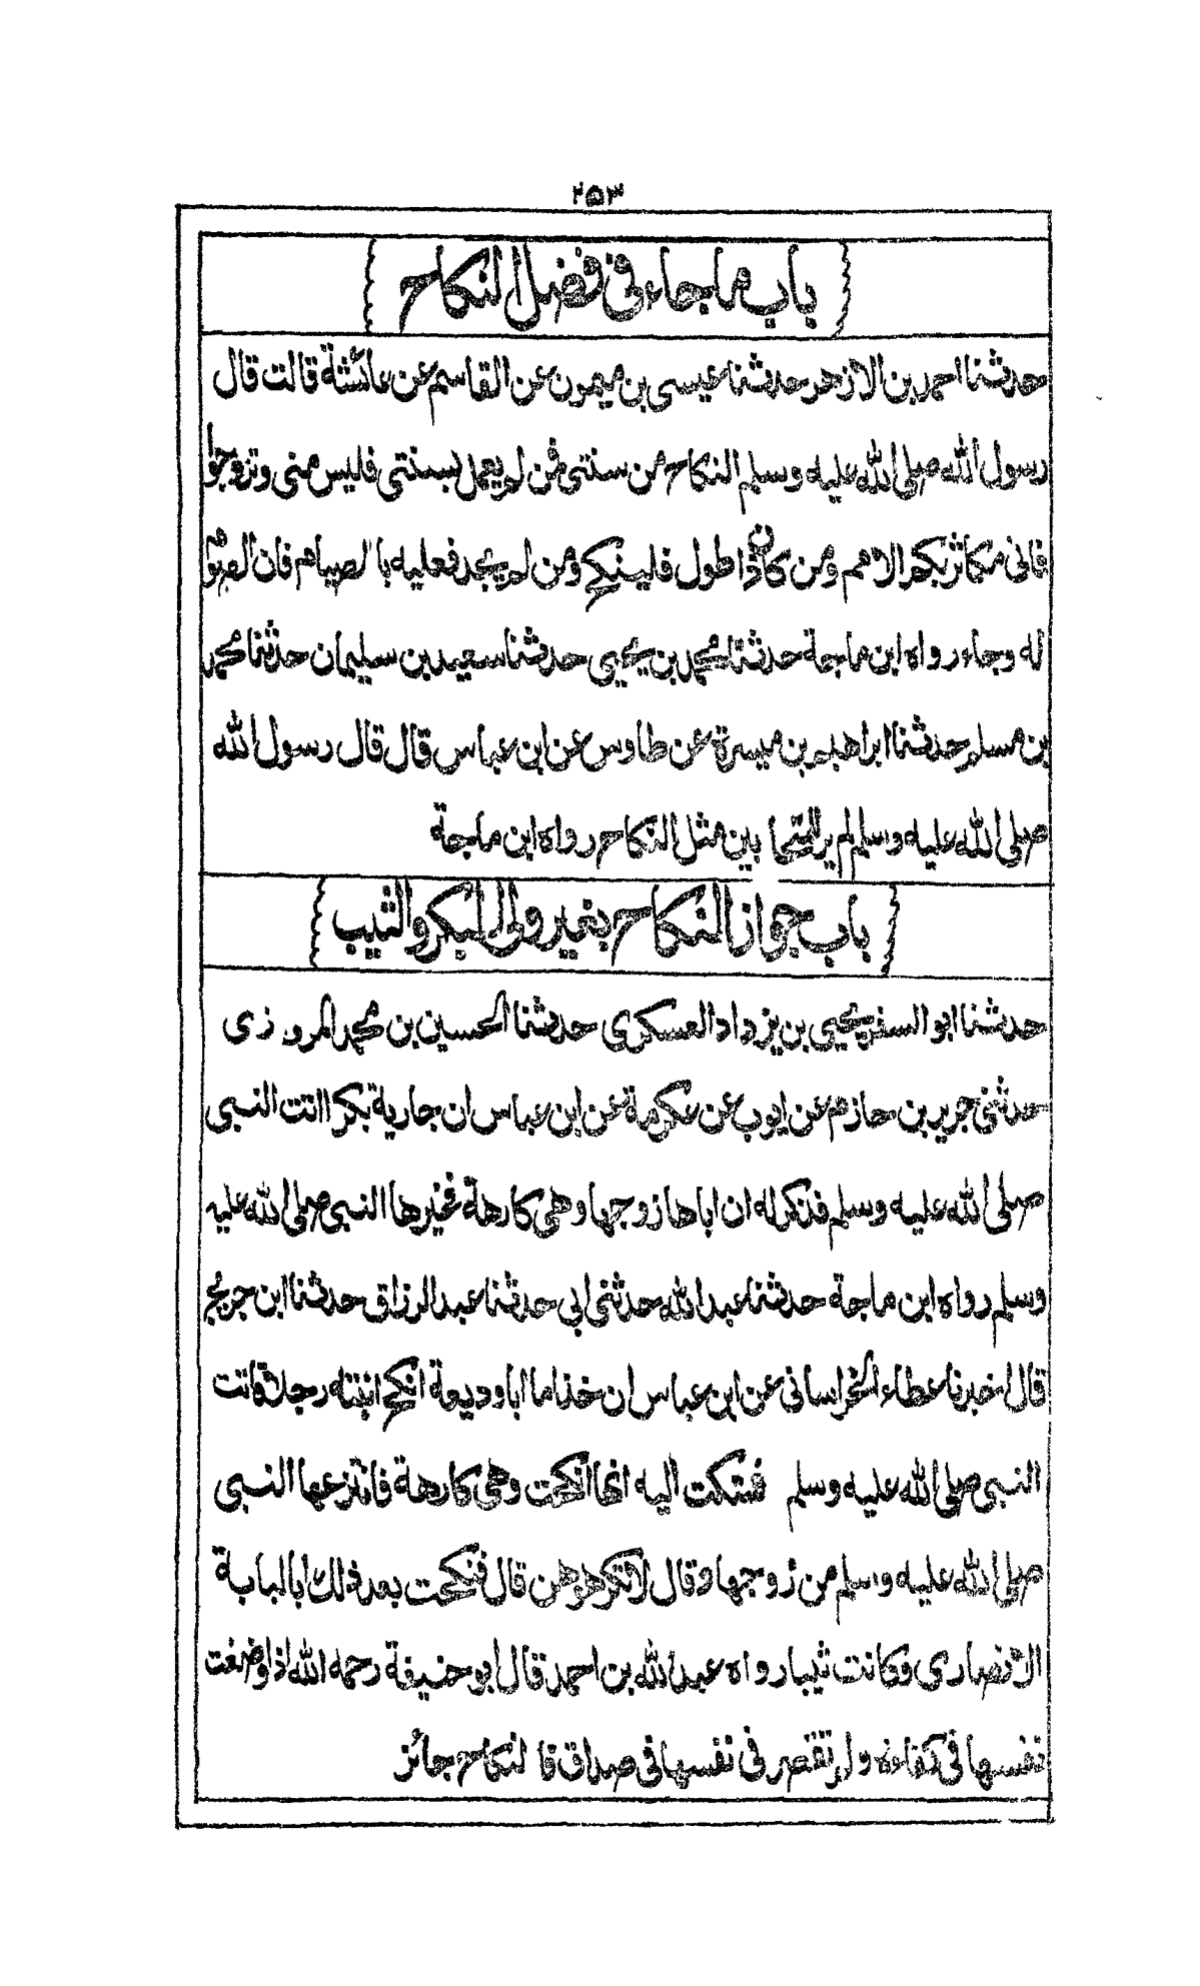 ۲۵۳
باب ماجاء في فضل النكاح
حدثنا احمد بن الازهر حدثنا عيسى بن ميمون عن القاسم عن عائشة قالت قال
رسول الله صلى الله عليه وسلم النكاح من سنتي فمن لم يعمل بسنتي فليس مني وتزوجوا
فاني مكاثر بكم الامم ومن كان ذا طول فلينكح ومن لم يجد فعليه بالصيام فان الصوم
له وجاء رواه ابن ماجة حدثنا محمد بن يحيى حدثنا سعيد بن سليمان حدثنا محمد
بن مسلم حدثنا ابراهيم بن ميسرة عن طاوس عن ابن عباس قال قال رسول الله
صلى الله عليه وسلم لم ير للمتحابين مثل النكاح رواه ابن ماجة
باب جواز النكاح بغير ولى للبكر والثيب
حدثنا ابو السفر يحيى بن يزداد العسكري حدثنا الحسين بن محمد المروزي
حدثني جرير بن حازم عن ايوب عن عكرمة عن ابن عباس ان جارية بكرا اتت النبي
صلى الله عليه وسلم فذكر له ان اباها زوجها وهي كارهة فخيرها النبي صلى الله عليه
وسلم رواه ابن ماجة حدثنا عبد الله حدثني ابي حدثنا عبد الرزاق حدثنا ابن جريج
قال اخبرنا عطاء الخراساني عن ابن عباس ان خذاما ابا وديعة انكح ابنته رجلا فاتت
النبي صلى الله عليه وسلم فشتكت اليه انها انكحت وهي كارهة فانتزعها النبي
صلى الله عليه وسلم من زوجها وقال لا تكرهوهن قال فنكحت بعد ذلك ابا لبابة
الانصاري وكانت ثيبا رواه عبد الله بن احمد قال ابو حنيفة رحمه الله اذا وضعت
نفسها في كفاءة ولم تقصر في نفسها في صداق فا لنكاح جائز